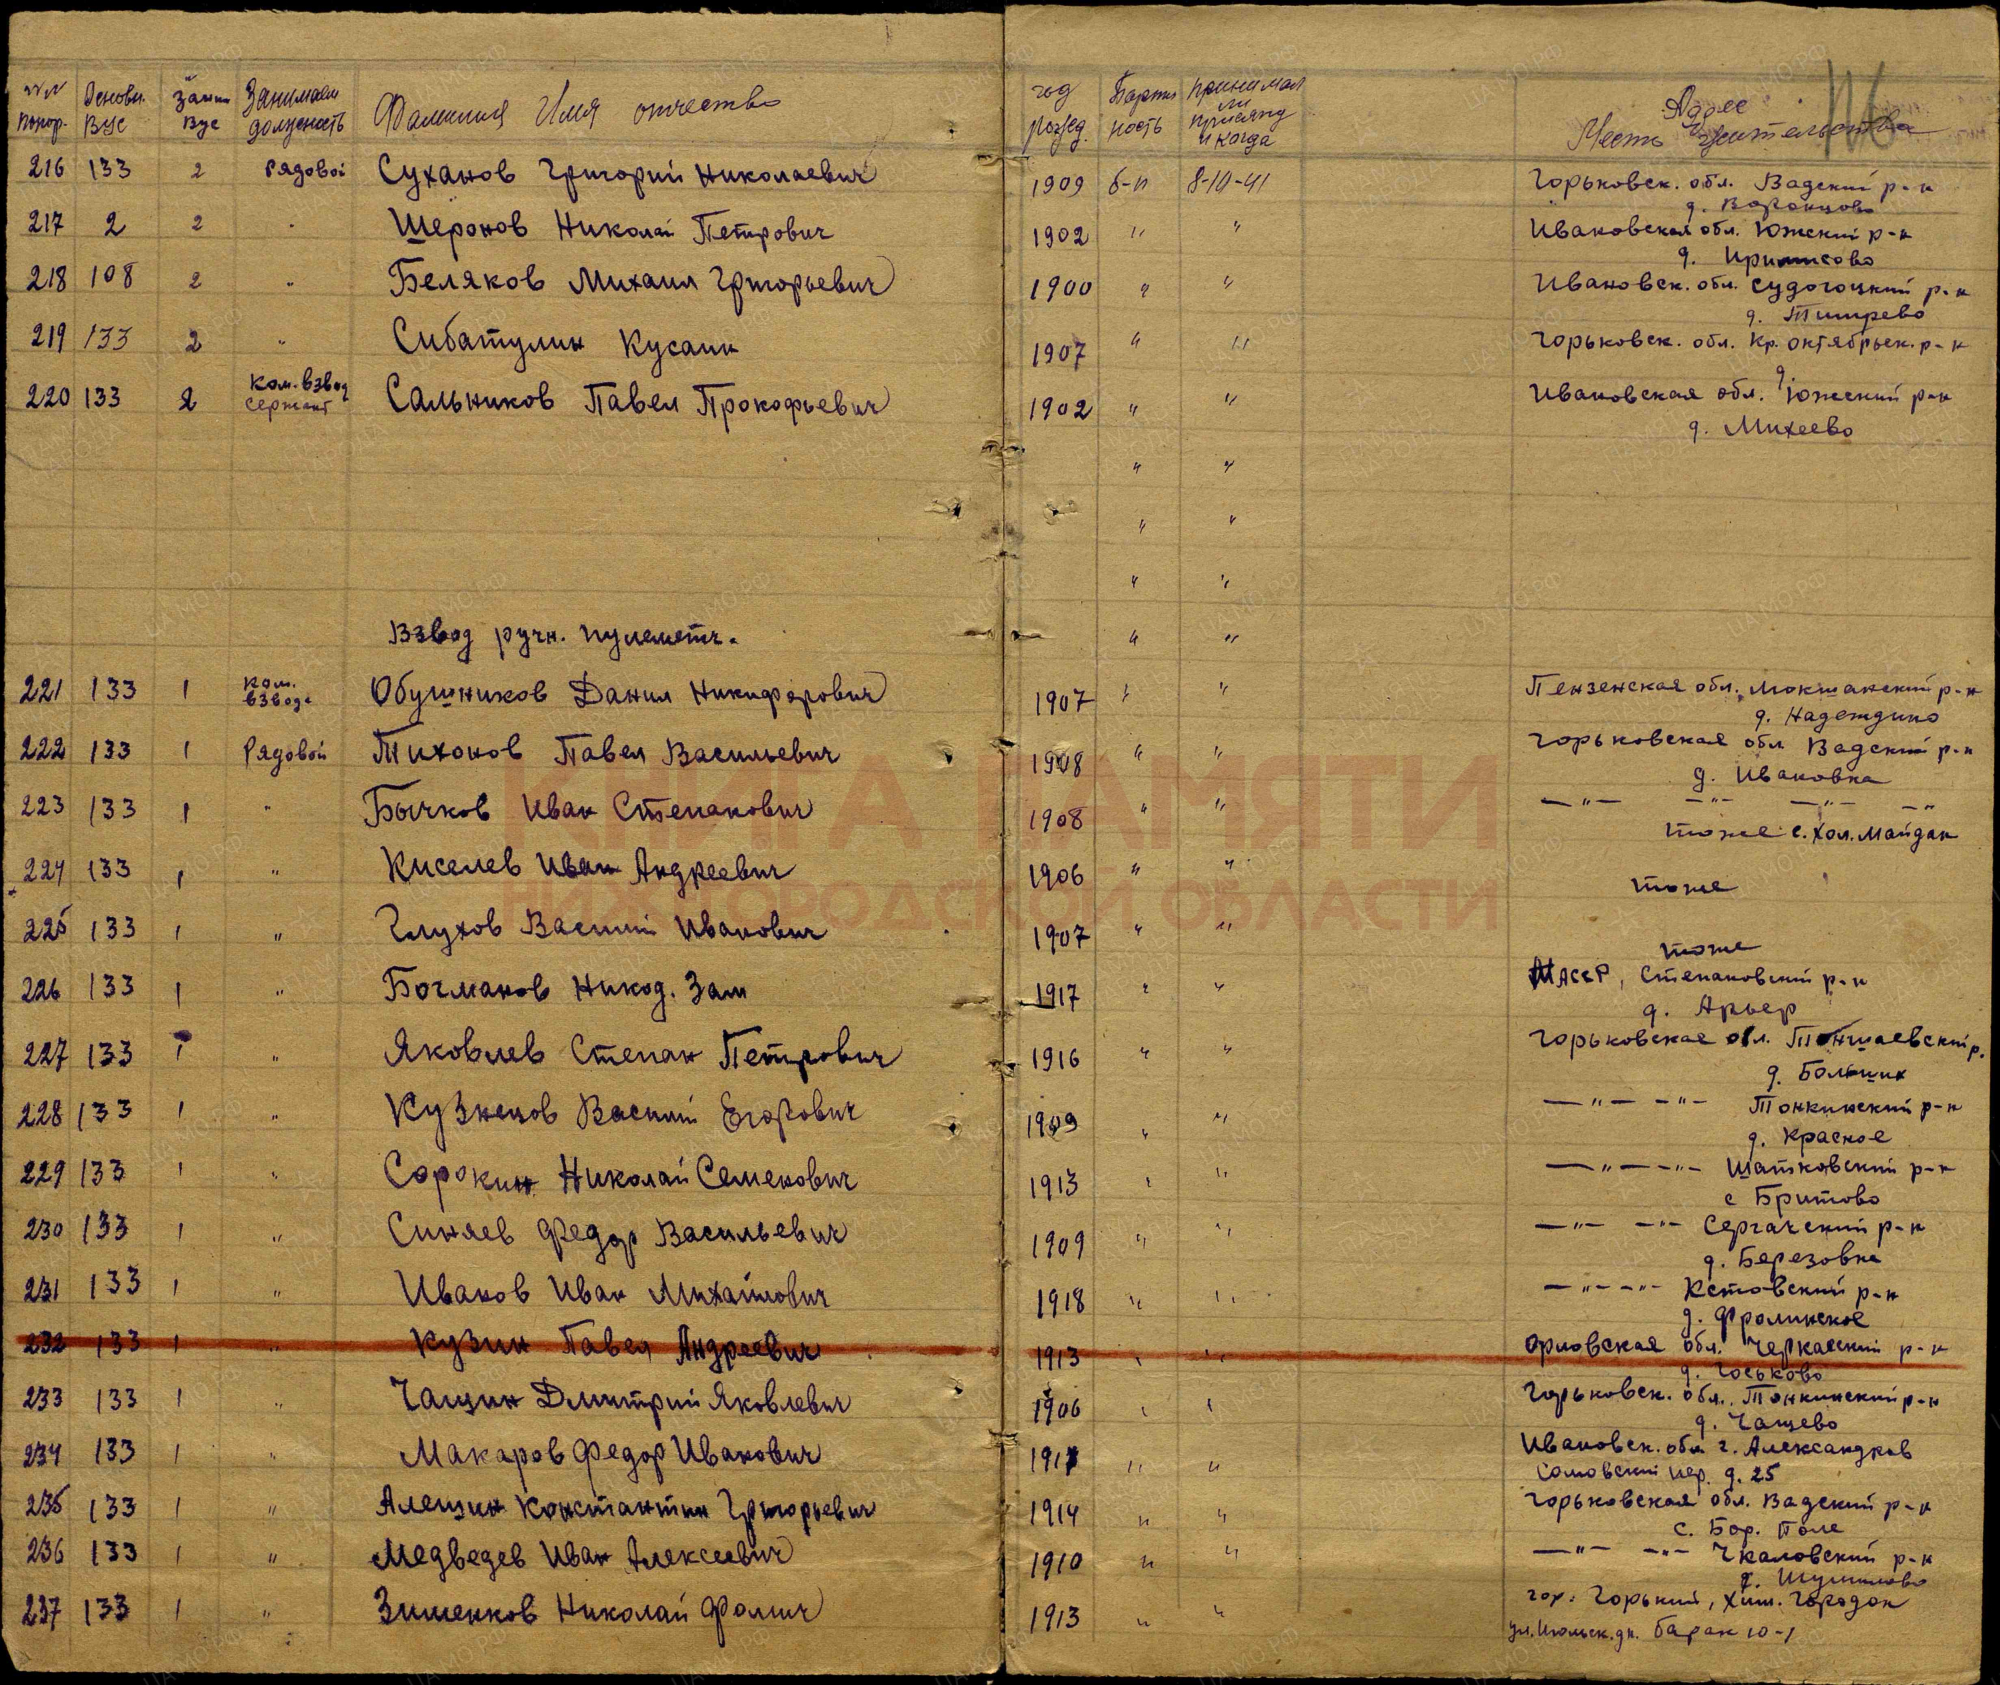 №№ покор. Основн. ВУС Заним ВУС Занимаем должность Фамилия Имя отчество год рожд. Партийность принимал ли присягу и когда Адрес Место жительства
216 133 2 Рядовой Суханов Григорий Николаевич 1909 б-п 8-10-41 Горьковск. обл. Вадский р-н
д. Воронцово
217 2 2 " Шеронов Николай Петрович 1902 " " Ивановская обл. Южский р-н
д.
218 108 2 " Беляков Михаил Григорьевич 1900 " " Ивановск. обл. Судогоцкий р-н
д. Тимирево
219 133 2 " Сибатулин Кусаин 1907 " " Горьковск. обл. Кр. октябрьск. р-н
д.
220 133 2 ком. взвод сержант Сальников Павел Прокофьевич 1902 " " Ивановская обл. Южский р-н
д. Михеево
" "
" "
" "
Взвод ручн. пулеметч. " "
221 133 1 ком. взвода Обушников Данил Никифорович 1907 " " Пензенская обл. Мокшанский р-н
д. Надеждино
222 133 1 Рядовой Тихонов Павел Васильевич 1908 " " Горьковская обл Вадский р-н
д. Ивановка
223 133 1 " Бычков Иван Степанович 1908 " " —"— —"— —"— —"
тоже с. Хол. Майдан
224 133 1 " Киселев Иван Андреевич 1906 " " тоже
225 133 1 " Глухов Василий Иванович 1907 " " тоже
226 133 1 " Богманов Никод. Зам 1917 " " МАССР, Степановский р-н
д. Арьер
227 133 1 " Яковлев Степан Петрович 1916 " " Горьковская обл. Тоншаевский р.
д. Больших
228 133 1 " Кузнецов Василий Егорович 1909 " " —"— —"— Тонкинский р-н
д. Красное
229 133 1 " Сорокин Николай Семенович 1913 " " —"— —"— Шатковский р-н
с Бритово
230 133 1 " Синяев Федор Васильевич 1909 " " —"— —"— Сергачский р-н
д. Березовка
231 133 1 " Иванов Иван Михайлович 1918 " " —"— —"— Кстовский р-н
д. Фролинское
232 133 1 " Кузин Павел Андреевич 1913 " " Орловская обл. Черкасский р-н
д. Госьково
233 133 1 " Чащин Дмитрий Яковлевич 1906 " " Горьковск. обл. Тонкинский р-н
д. Чащево
234 133 1 " Макаров Федор Иванович 1911 " " Ивановск. обл г. Александров
Сомовский пер. д. 25
235 133 1 " Алешин Константин Григорьевич 1914 " " Горьковская обл. Вадский р-н
с. Бор. Поле
236 133 1 " Медведев Иван Алексеевич 1910 " " —"— —"— Чкаловский р-н
д. Шумилово
237 133 1 " Зименков Николай Фомич 1913 " " гор. Горький, Хим. Городок
ул. Июльск. дн. барак 10-1
КНИГА ПАМЯТИ
НИЖЕГОРОДСКОЙ ОБЛАСТИ